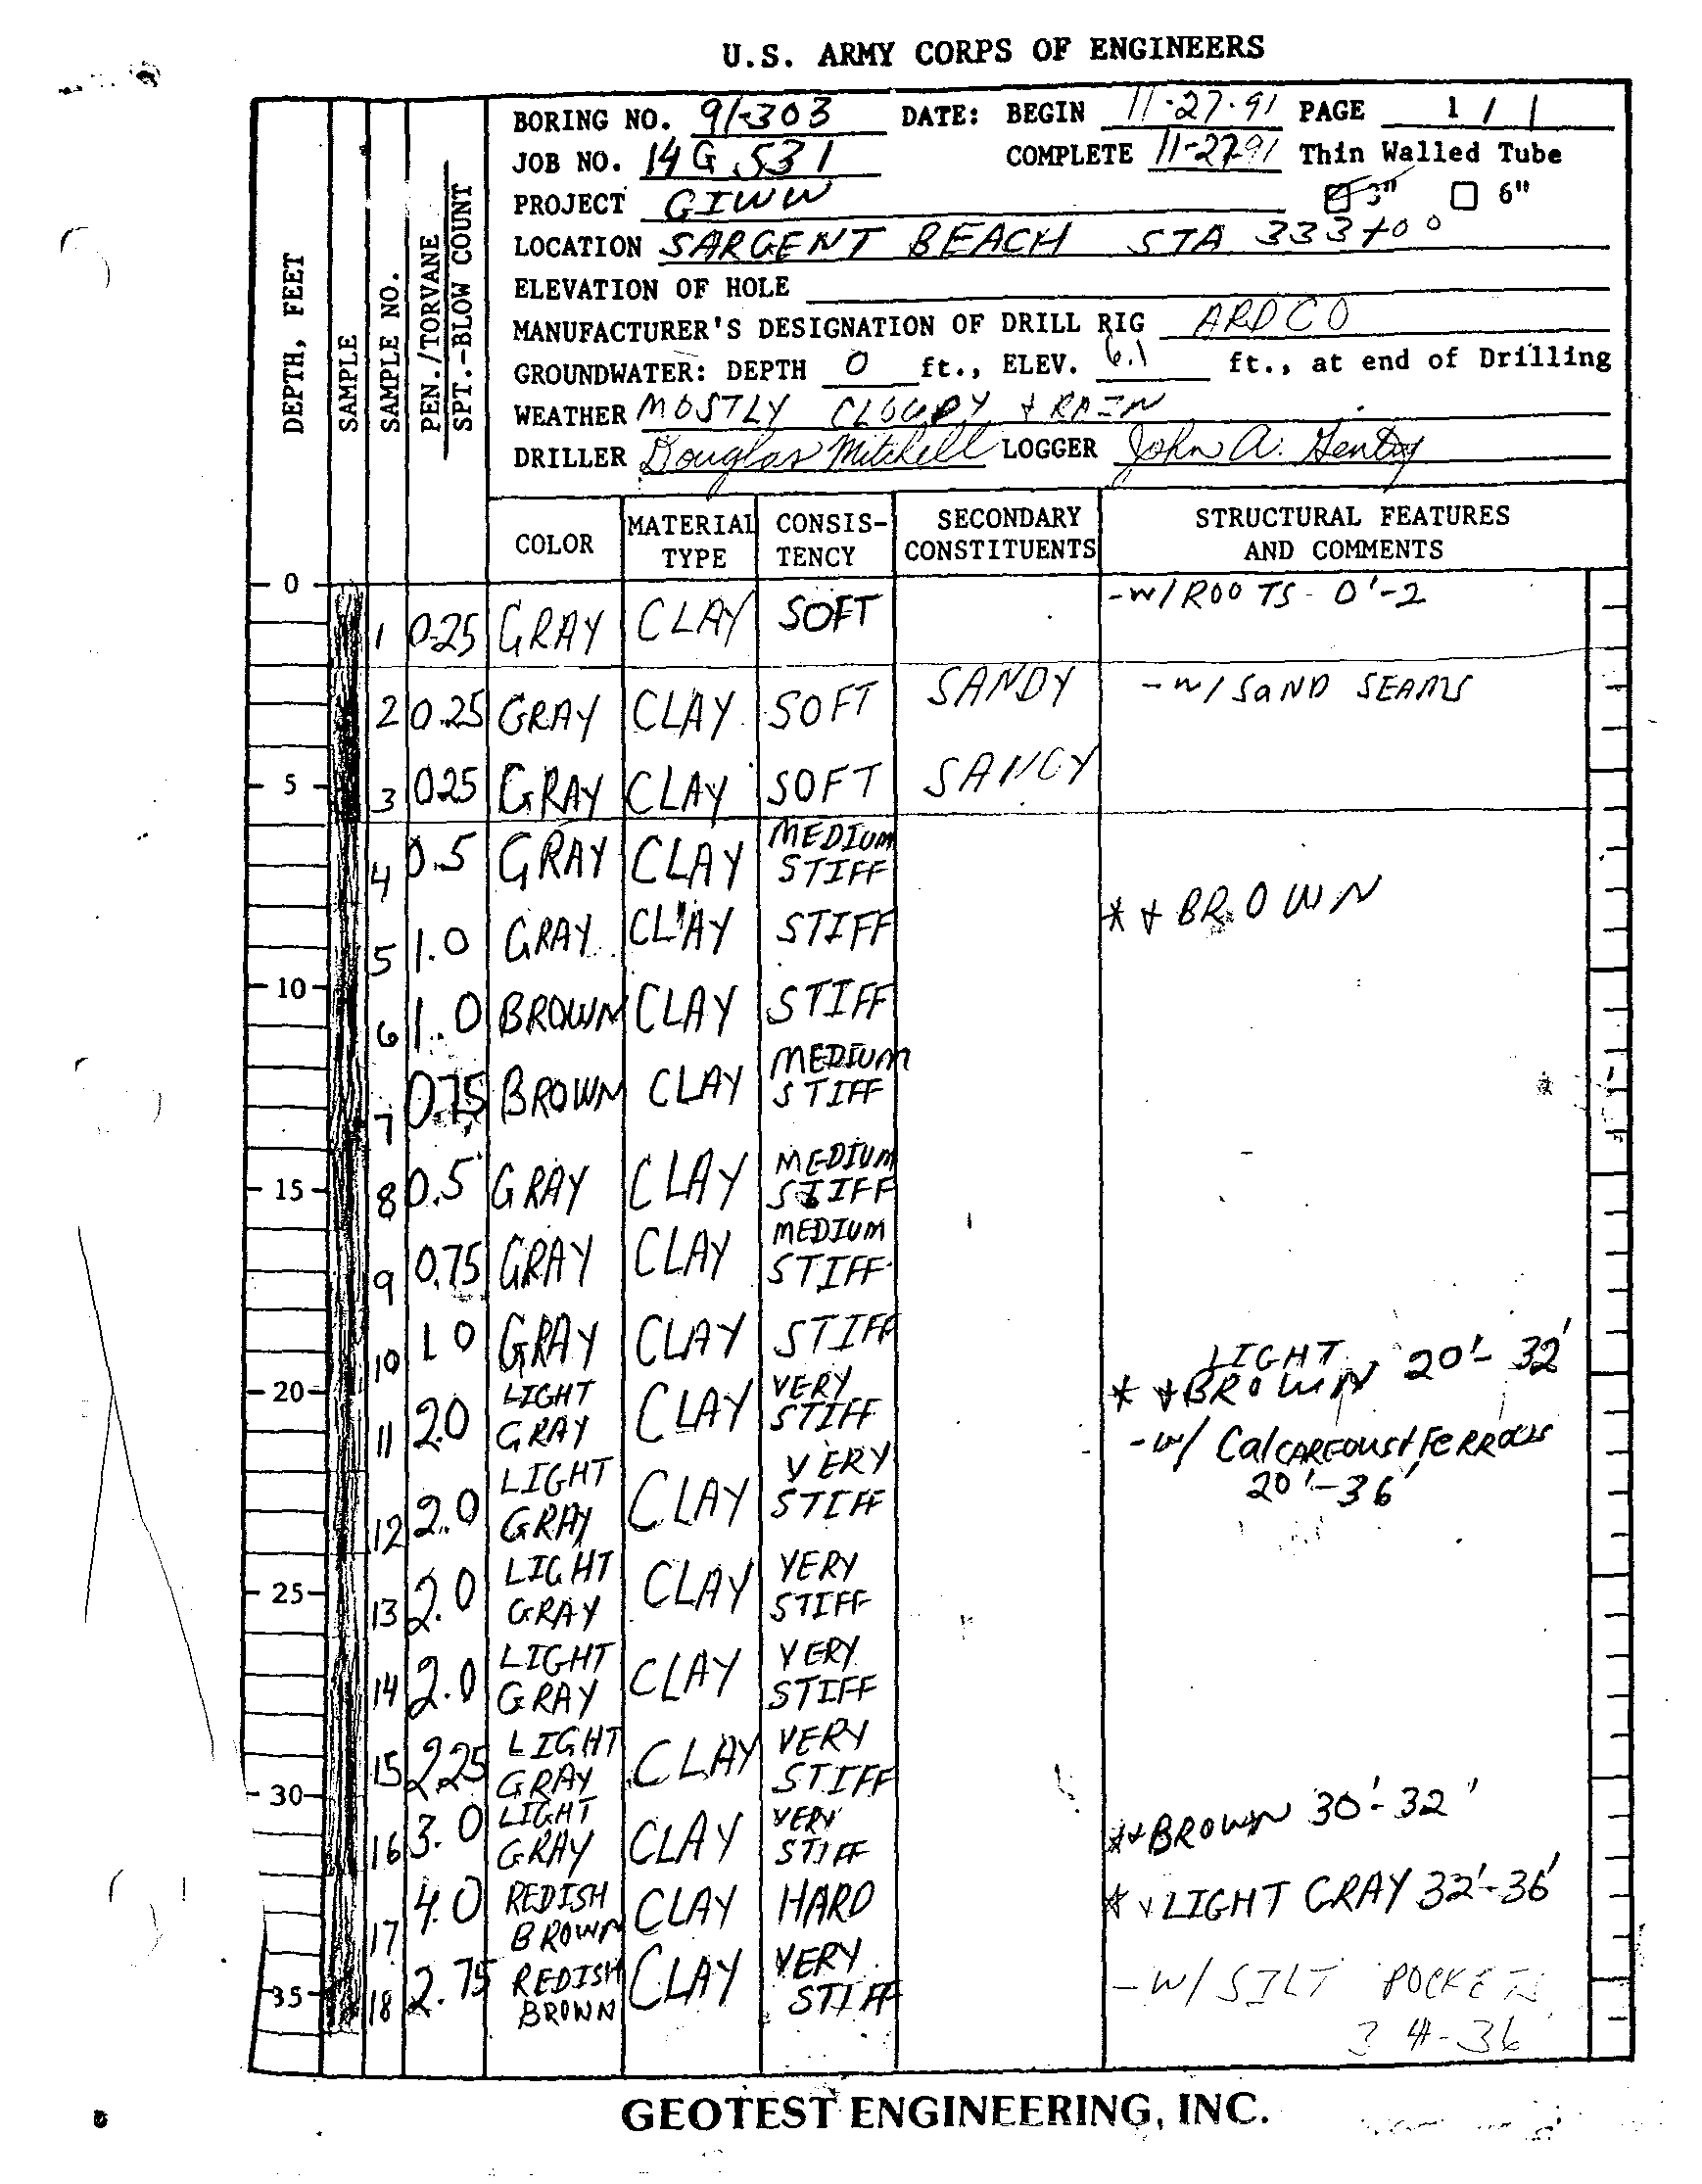 U.S. ARMY CORPS OF ENGINEERS
BORING NO. 91-303 DATE: BEGIN 11-27-91 PAGE 1 / 1
JOB NO. 14G 531 COMPLETE 11-27-91 Thin Walled Tube
PROJECT GIWW ☑ 3" ☐ 6"
LOCATION SARGENT BEACH STA 333+00
ELEVATION OF HOLE
MANUFACTURER'S DESIGNATION OF DRILL RIG ARDCO
GROUNDWATER: DEPTH 0 ft., ELEV. 6.1 ft., at end of Drilling
WEATHER MOSTLY CLOUDY + RAIN
DRILLER Douglas Mitchell LOGGER John A. Gentry
DEPTH, FEET
SAMPLE
SAMPLE NO.
PEN./TORVANE
SPT.-BLOW COUNT
COLOR MATERIAL TYPE CONSIS-TENCY SECONDARY CONSTITUENTS STRUCTURAL FEATURES AND COMMENTS
0
1 0.25 GRAY CLAY SOFT -W/ROOTS - 0'-2
2 0.25 GRAY CLAY SOFT SANDY -W/SAND SEAMS
5
3 0.25 GRAY CLAY SOFT SANDY
4 0.5 GRAY CLAY MEDIUM STIFF
5 1.0 GRAY CLAY STIFF * + BROWN
10
6 1.0 BROWN CLAY STIFF
7 0.75 BROWN CLAY MEDIUM STIFF
15
8 0.5 GRAY CLAY MEDIUM STIFF
9 0.75 GRAY CLAY MEDIUM STIFF
10 1.0 GRAY CLAY STIFF
20
* + LIGHT BROWN 20'-32'
11 2.0 LIGHT GRAY CLAY VERY STIFF
-W/ CalCAREOUS+FERROUS
20'-36'
12 2.0 LIGHT GRAY CLAY VERY STIFF
25
13 2.0 LIGHT GRAY CLAY VERY STIFF
14 2.0 LIGHT GRAY CLAY VERY STIFF
15 2.25 LIGHT GRAY CLAY VERY STIFF
30
16 3.0 LIGHT GRAY CLAY VERY STIFF *+BROWN 30'-32'
17 4.0 REDISH BROWN CLAY HARD * + LIGHT GRAY 32'-36'
35
18 2.75 REDISH BROWN CLAY VERY STIFF -W/ SILT POCKETS
34-36
GEOTEST ENGINEERING, INC.